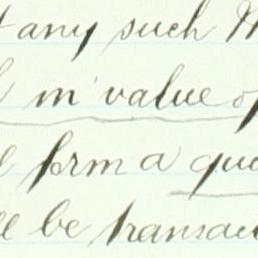 any such
m value of
form a quo
be transac